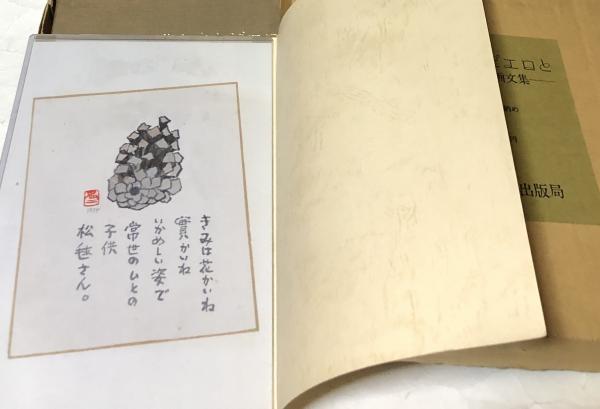 きみは花かいね
實かいね
いかめしい姿で
常世のひとの
子供
松毬さん。
1984
エロと
画文集
納め
出版局